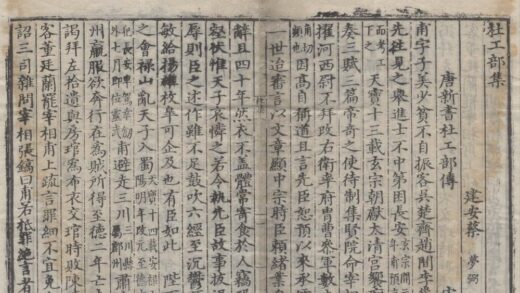 杜工部集
建安蔡 夢弼
唐新書杜工部傳
甫字子美少貧不自振客吳楚齊趙間李邕
先往見之舉進士不中第因長安
下之 天寶十三載玄宗朝獻太清宮饗
奏三賦三篇帝奇之使待制集賢院命宰
擢河西尉不拜改右衛率府冑曹參軍數
因高自稱道且言先臣恕預以來承
一世迨審言以文章顯中宗時臣賴緒業
辭且四十年然衣不蓋體常寄食於人竊
壑伏惟天子哀憐之若令執先臣故事拔
辱則臣之述作雖不足鼓吹六經至沈鬱
敏給揚雄枚皐可企及也有臣如此 陛
之會祿山亂天子入蜀
甫避走三川 肅
州羸服欲奔行在為賊所得至德二年亡
謁拜左拾遺與房琯為布衣交琯時敗陳
客董廷蘭罷宰相甫上疏言罪細不宜免
詔三司雜問宰相張鎬曰甫若抵罪絕言者